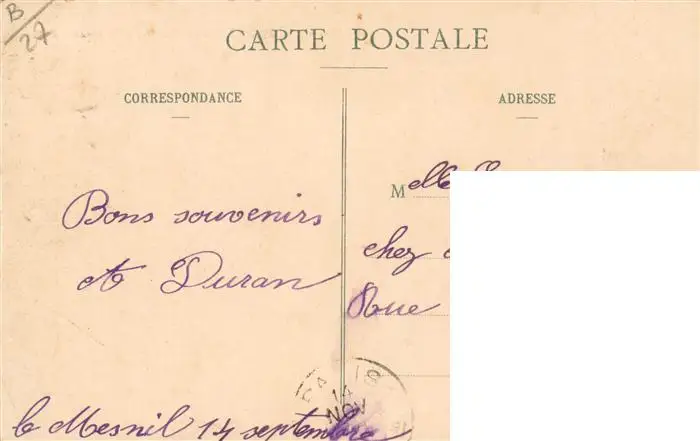 B
27
CARTE POSTALE
CORRESPONDANCE
ADRESSE
Bons souvenirs
A Duran
Melle
chez
Rue
PARIS
14
NOV
le Mesnil 14 septembre